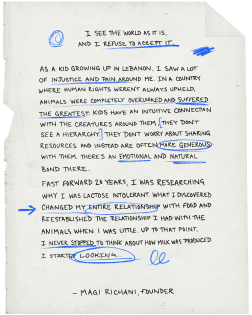 I SEE THE WORLD AS IT IS,
AND I REFUSE TO ACCEPT IT...
AS A KID GROWING UP IN LEBANON, I SAW A LOT
OF INJUSTICE AND PAIN AROUND ME. IN A COUNTRY
WHERE HUMAN RIGHTS WEREN'T ALWAYS UPHELD,
ANIMALS WERE COMPLETELY OVERLOOKED AND SUFFERED
THE GREATEST. KIDS HAVE AN INTUITIVE CONNECTION
WITH THE CREATURES AROUND THEM. THEY DON'T
SEE A HIERARCHY. THEY DON'T WORRY ABOUT SHARING
RESOURCES AND INSTEAD ARE OFTEN MORE GENEROUS
WITH THEM. THERE'S AN EMOTIONAL AND NATURAL
BOND THERE.
FAST FORWARD 20 YEARS, I WAS RESEARCHING
WHY I WAS LACTOSE INTOLERANT. WHAT I DISCOVERED
CHANGED MY ENTIRE RELATIONSHIP WITH FOOD AND
REESTABLISHED THE RELATIONSHIP I HAD WITH THE
ANIMALS WHEN I WAS LITTLE. UP TO THAT POINT,
I NEVER STOPPED TO THINK ABOUT HOW MILK WAS PRODUCED
I STARTED LOOKING...
- MAGI RICHANI, FOUNDER